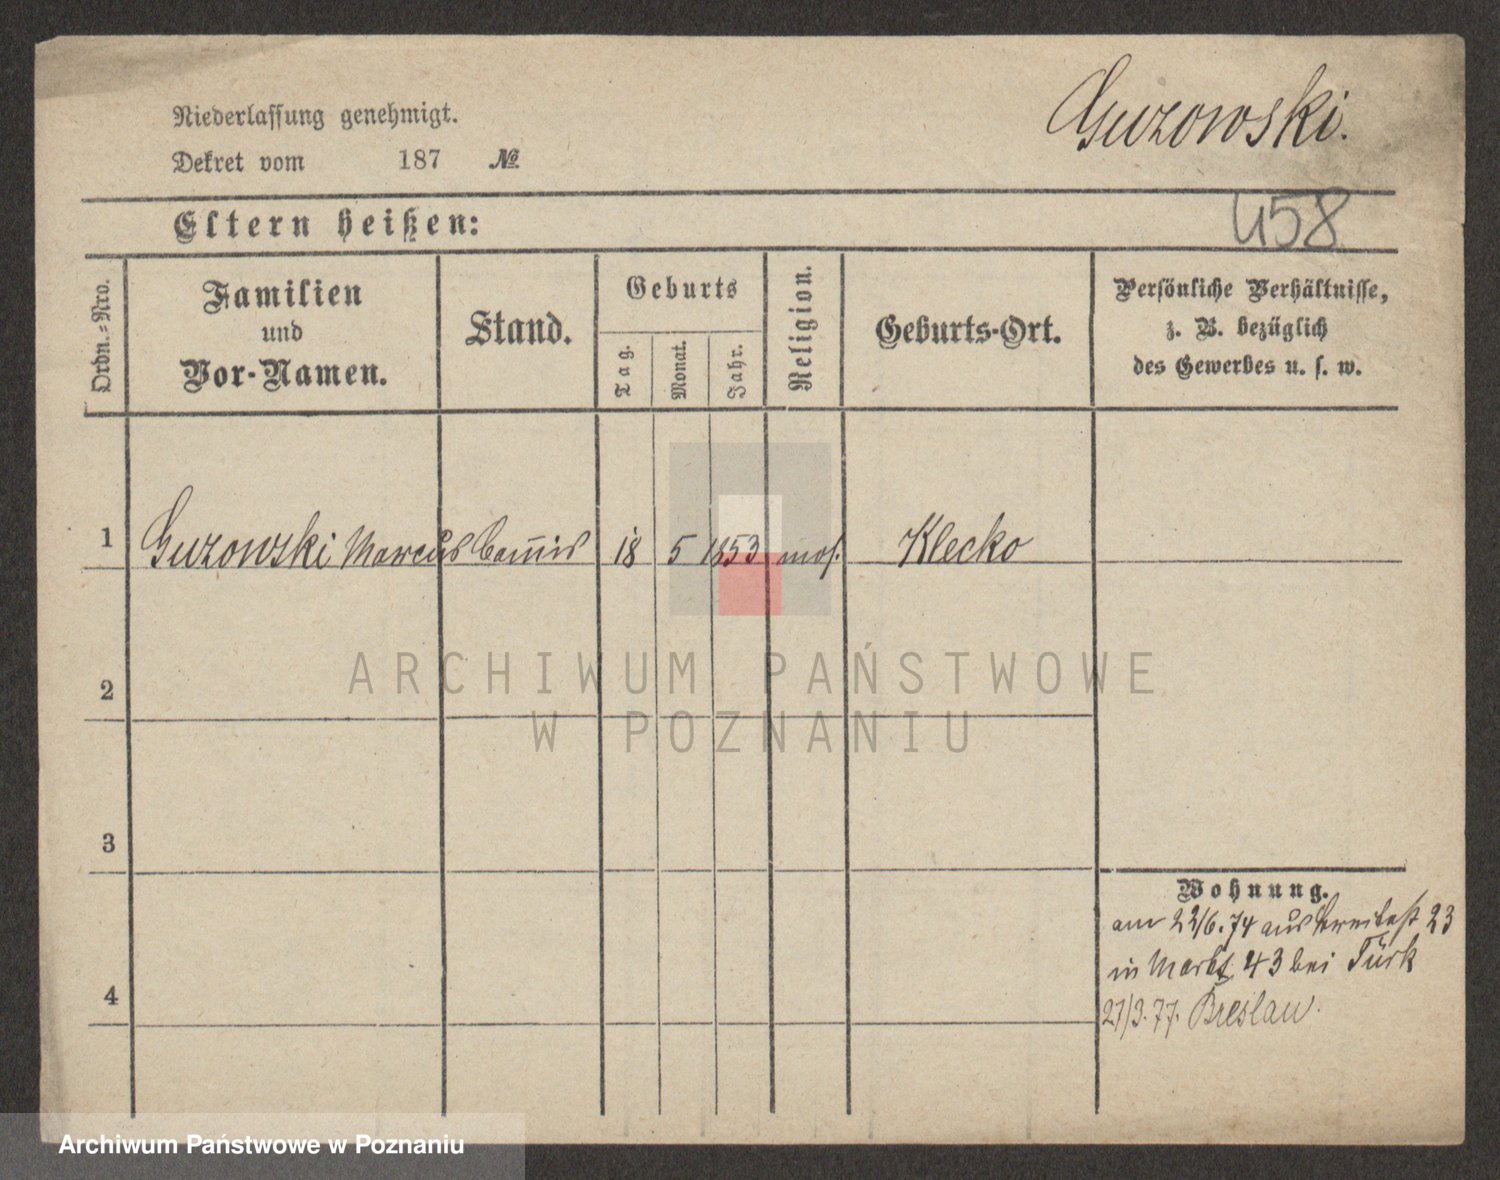 Guzowski.
Niederlassung genehmigt.
Dekret vom 187 №
458
Eltern heißen:
Ordn.=Nro.
Familien
und
Vor-Namen.
Stand.
Geburts
Tag.
Monat.
Jahr.
Religion.
Geburts-Ort.
Persönliche Verhältnisse,
z. B. bezüglich
des Gewerbes u. s. w.
1 Guzowski Marcus Com̅is 18 5 1853 mos. Klecko
2
3
4
Wohnung.
am 22/6. 74 aus 23
in Markt 43 bei Türk
27/3. 77. Breslau.
ARCHIWUM PAŃSTWOWE
W POZNANIU
Archiwum Państwowe w Poznaniu